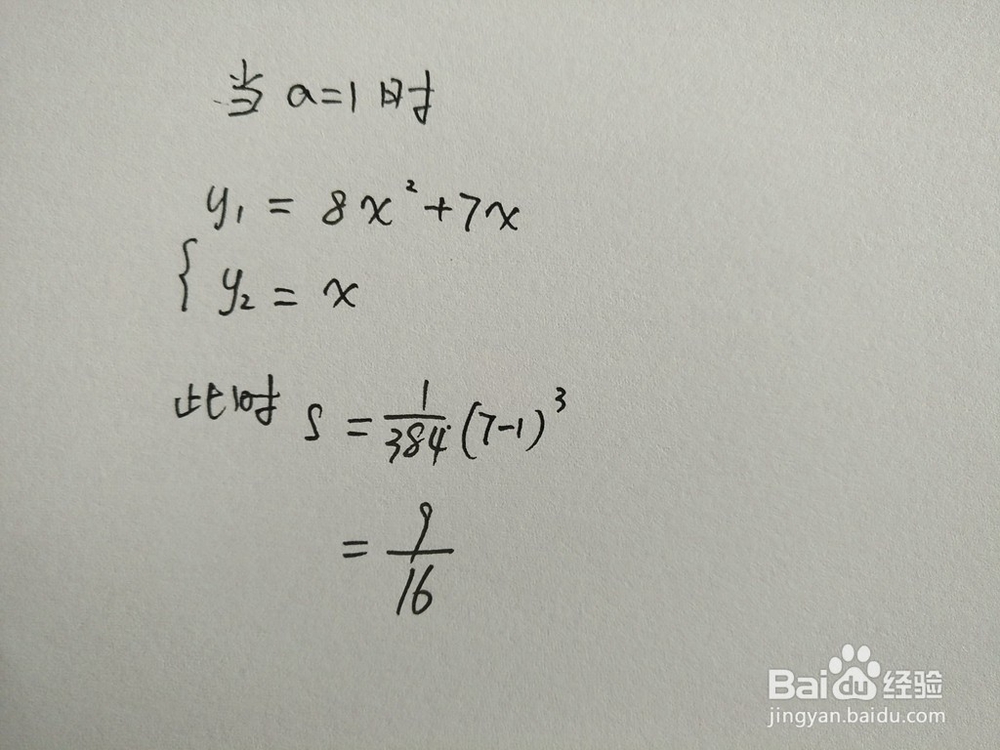 当 a=1 时
y₁ = 8x²+7x
{ y₂ = x
此时 S = 1/384 (7-1)³
= 9/16
Baidu 经验
jingyan.baidu.com